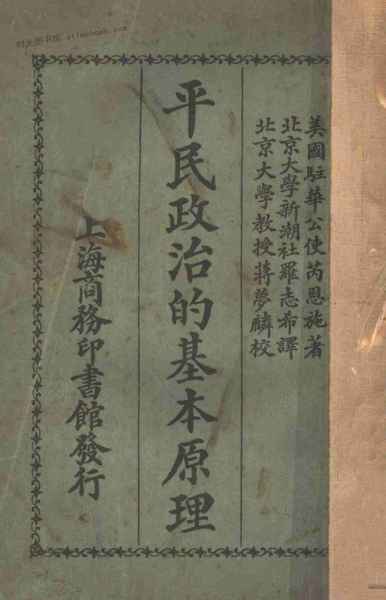 美國駐華公使芮恩施著
北京大學新潮社羅志希譯
北京大學教授蔣夢麟校
平民政治的基本原理
上海商務印書館發行